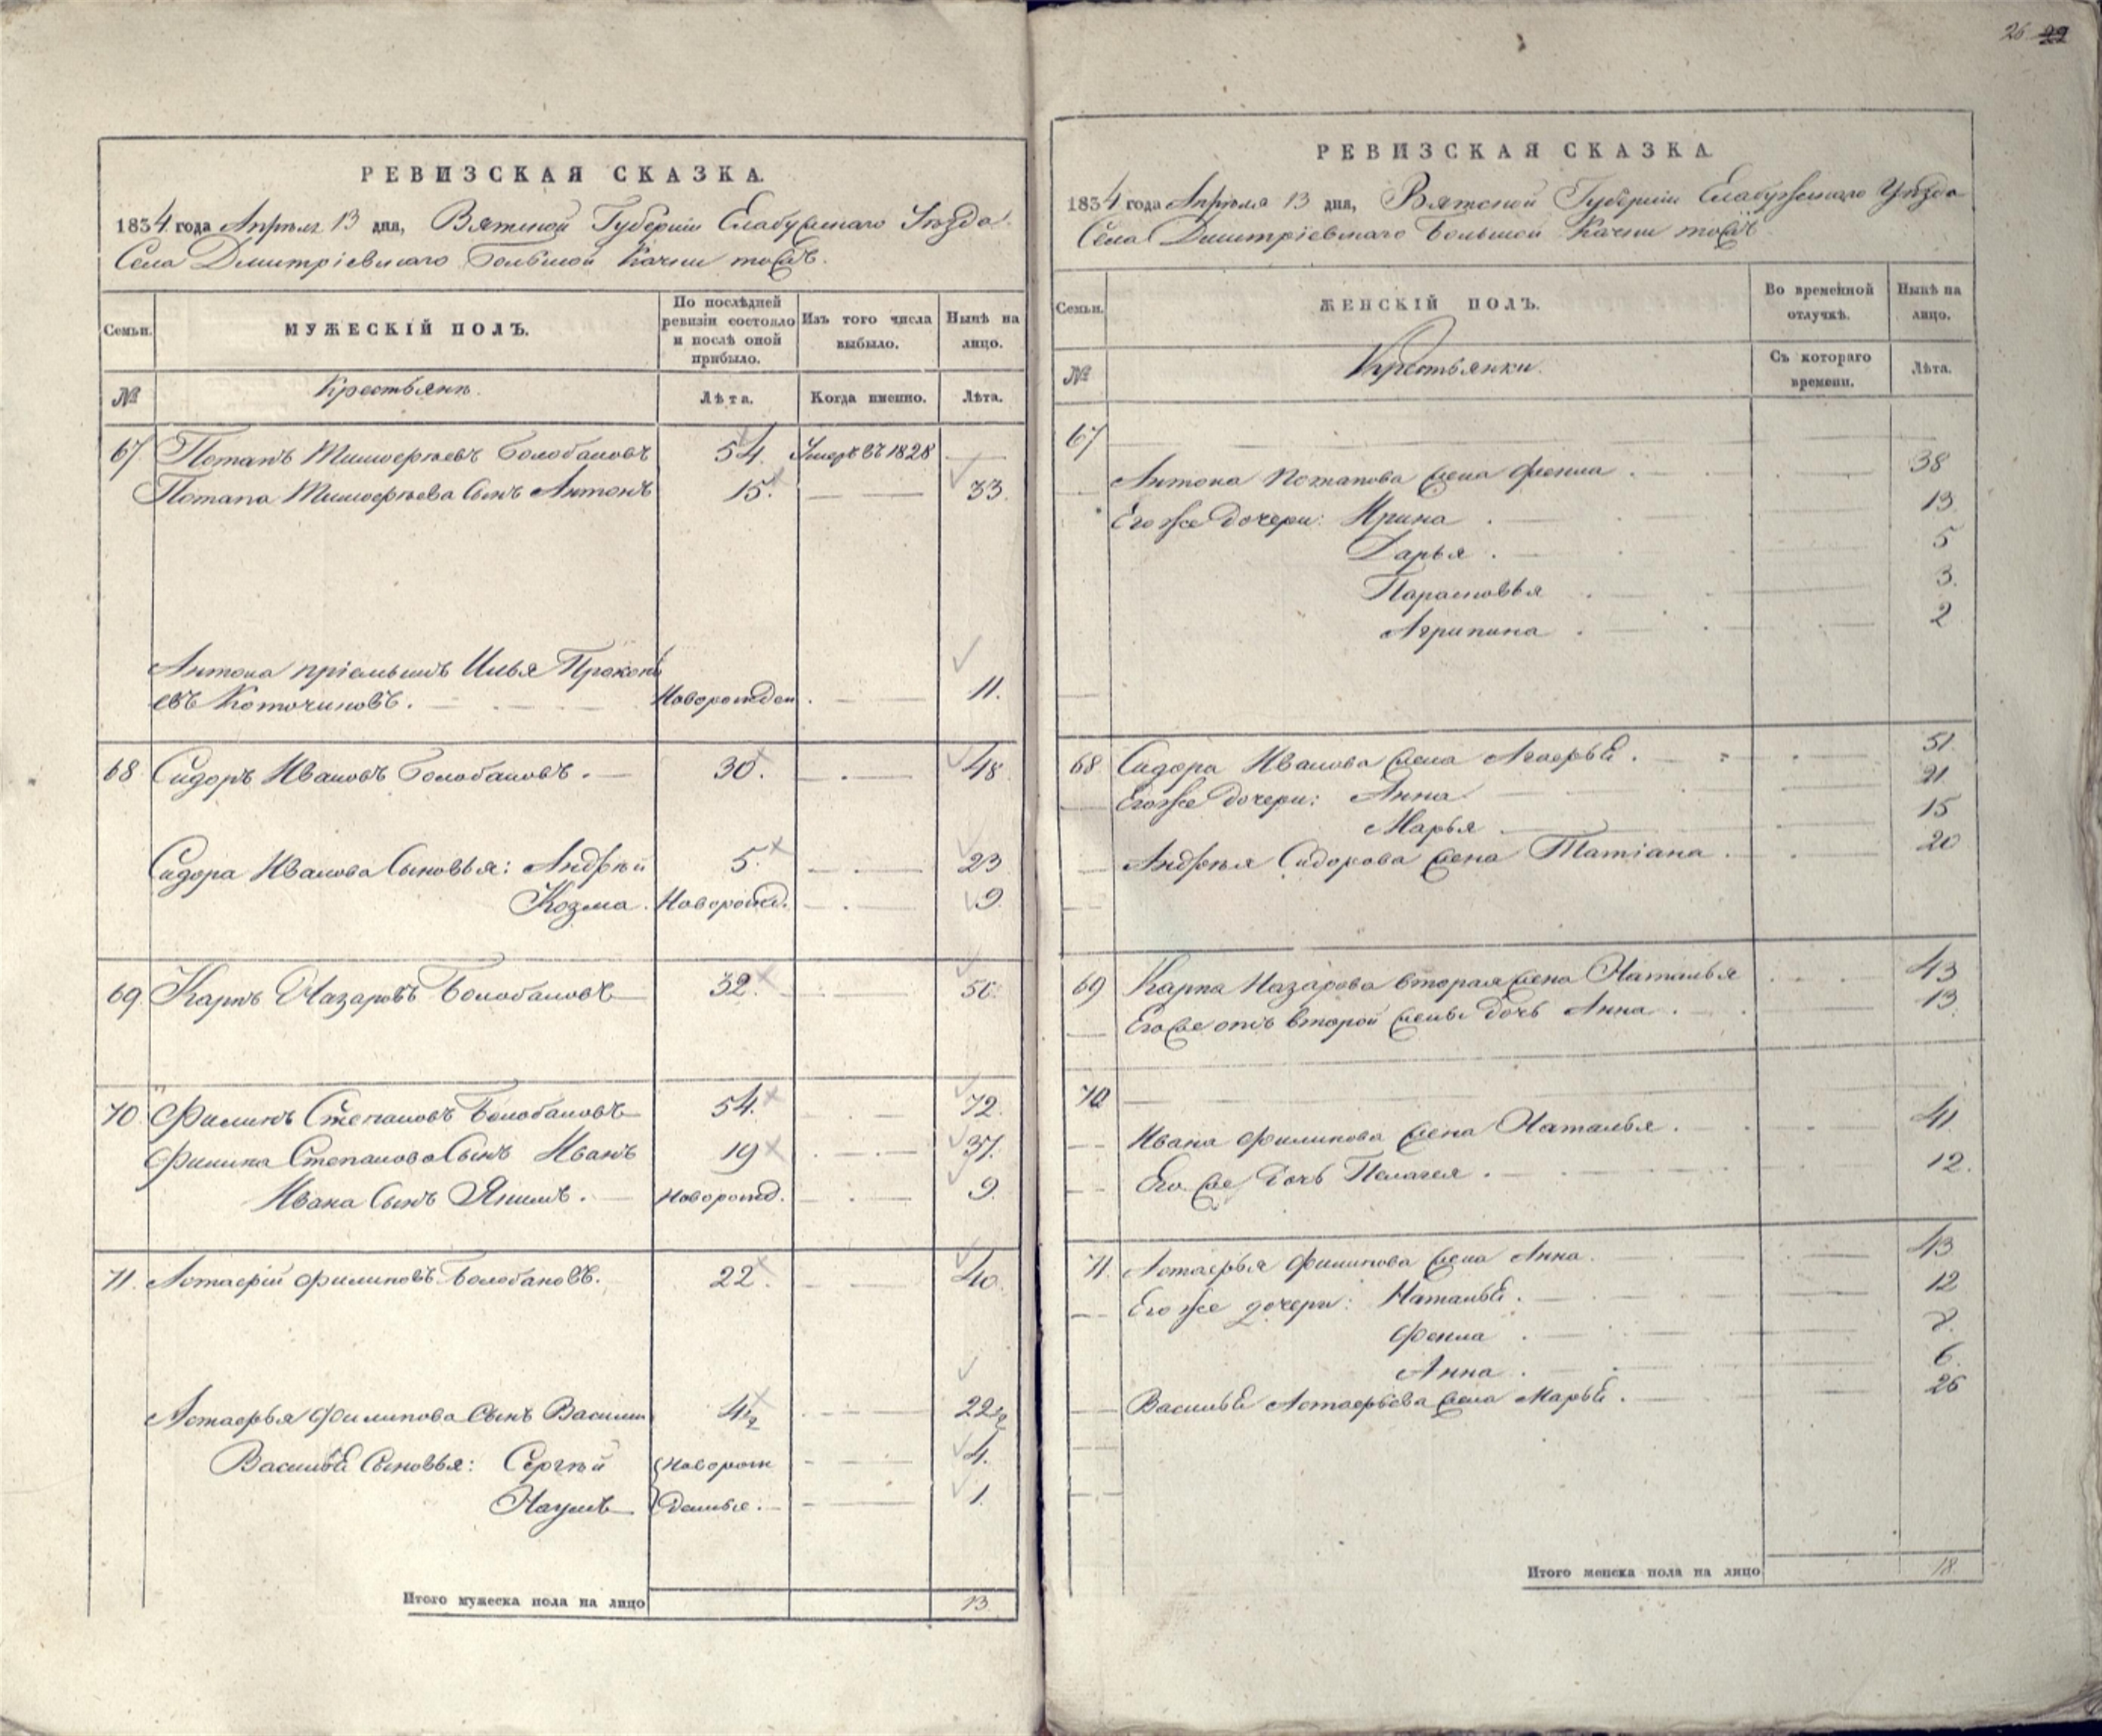 26 22
РЕВИЗСКАЯ СКАЗКА.
1834 года Апрѣля 13 дня, Вятской Губерніи Елабужскаго Уѣзда
Села Дмитріевскаго Большой Качки тожъ.
Семьи.
МУЖЕСКІЙ ПОЛЪ.
По послѣдней ревизіи состояло и послѣ оной прибыло.
Изъ того числа выбыло.
Нынѣ на лицо.
№
Крестьяне.
Лѣта.
Когда именно.
Лѣта.
67 Потапъ Тимоѳеевъ Болобановъ 54. Умеръ въ 1828 —
Потапа Тимоѳеева Сынъ Антонъ 15. — — 33.
Антона пріемышъ Илья Прокопь
евъ Коточиковъ. Новорожден. — 11.
68 Сидоръ Ивановъ Болобановъ. 30. — 48
Сидора Иванова Сыновья: Андрѣй 5. — 23
Козма. Новорожд. — 9.
69 Карпъ Назаровъ Болобановъ 32. — 50.
70 Филипъ Степановъ Болобановъ 54. — 72.
Филипа Степанова Сынъ Иванъ 19 — 37.
Ивана Сынъ Якимъ. Новорожд. — 9.
71. Астафій Филиповъ Болобановъ. 22. — 40.
Астафья Филипова Сынъ Василий 4½ — 22½
Василья Сыновья: Сергѣй { Новорож — 4.
Наумъ } денные. — 1.
Итого мужеска пола на лицо 13.
РЕВИЗСКАЯ СКАЗКА.
1834 года Апрѣля 13 дня, Вятской Губерніи Елабужскаго Уѣзда
Села Дмитріевскаго Большой Качки тожъ
Семьи.
ЖЕНСКІЙ ПОЛЪ.
Во временной отлучкѣ.
Нынѣ на лицо.
№
Крестьянки.
Съ котораго времени.
Лѣта.
67
Антона Потапова жена Фекла. 38
Его же дочери: Ирина. 13.
Дарья. 5
Парасковья. 3.
Агрипина. 2
68 Сидора Иванова жена Агафья. 51.
Его же дочери: Анна. 21.
Марья 15
Андрѣя Сидорова жена Татіана. 20
69 Карпа Назарова вторая жена Наталья 43
Его же отъ второй жены дочь Анна. 13.
70
Ивана Филипова жена Наталья. 41
Его же дочь Пелагея. 12.
71. Астафья Филипова жена Анна. 43
Его же дочери: Наталья. 12
Фекла. 8.
Анна. 6.
Василья Астафьева жена Марья. 26
Итого женска пола на лицо 18.